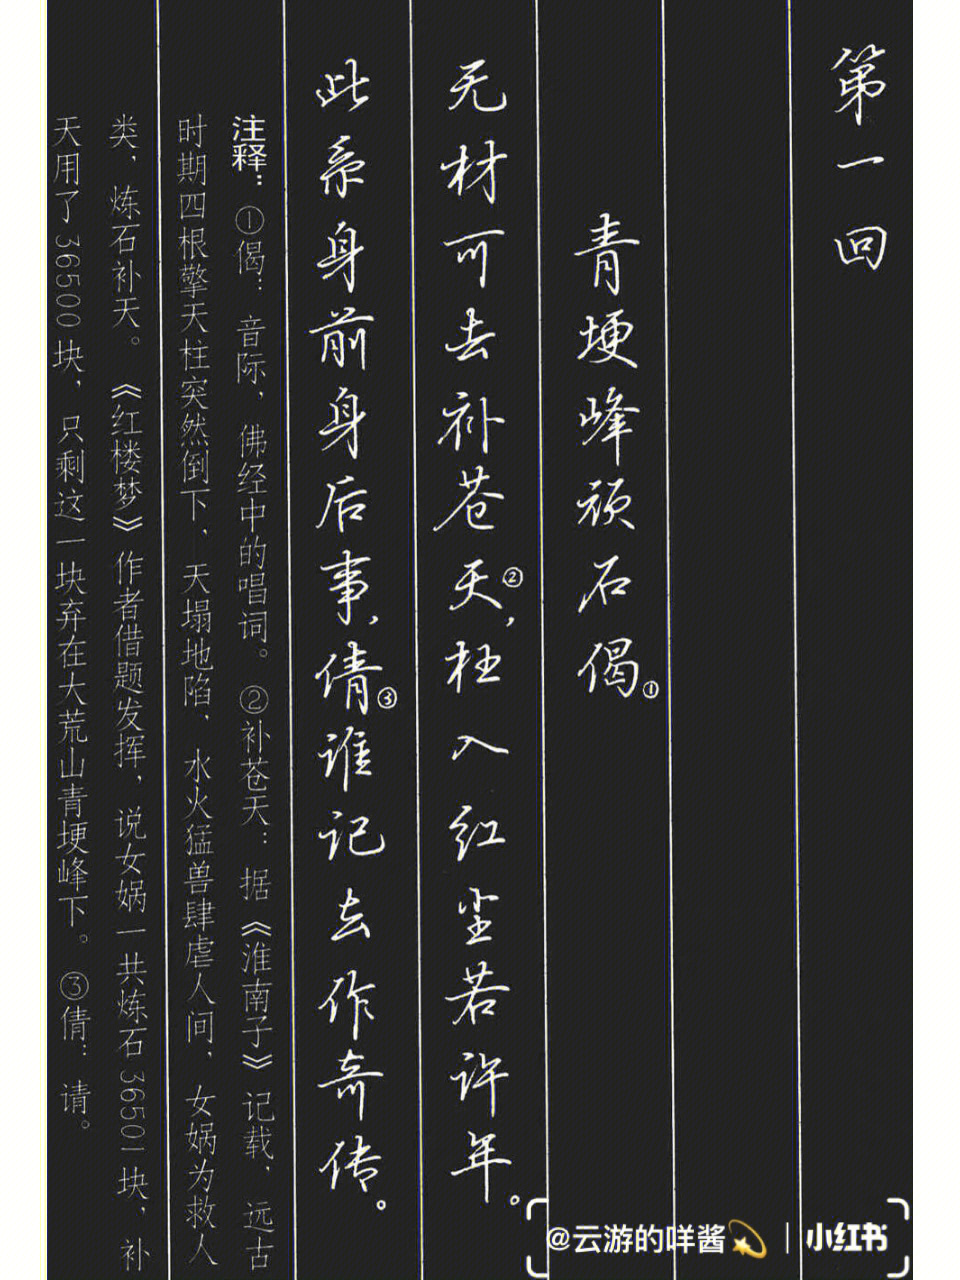 第一回
青埂峰顽石偈①
无材可去补苍天②，枉入红尘若许年。
此系身前身后事，倩③谁记去作奇传。
注释：①偈：音际，佛经中的唱词。②补苍天：据《淮南子》记载，远古
时期四根擎天柱突然倒下，天塌地陷，水火猛兽肆虐人间，女娲为救人
类，炼石补天。《红楼梦》作者借题发挥，说女娲一共炼石36501块，补
天用了36500块，只剩这一块弃在大荒山青埂峰下。③倩：请。
@云游的咩酱💫 | 小红书